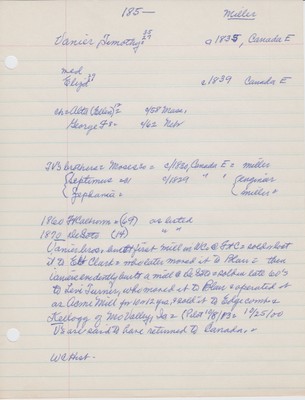 185—
Miller
Vanier Timothy 25 35
a 1835, Canada E
md
Eliza 23
c 1839 Canada E
ch= Alta (Delia) 12 4/58 Minn,
George F 8= 4/62 Nebr
3 VB brothers= Moses = c/1830, Canada E = miller
Septimus = c/1829 " "
Zephanie =
miller =
1860 Ft Calhoun = (69) as listed
1870 De Soto (14) " "
Vanier bros. built first mill in WC @ Ft C = sold or lost
it to EH Clark = who later moved it to Blair = then
Vaniers evidently built a mill @ De Soto = sold in late 60's
to Levi Turner, who moved it to Blair = operated it
as Acme Mill for 10-12 yrs, = sold it to Edgecomb &
Kellogg of Mo Valley, Ia = (Pilot 11/8/83 = 10/25/00
V's are said to have returned to Canada, =
WC Hist.